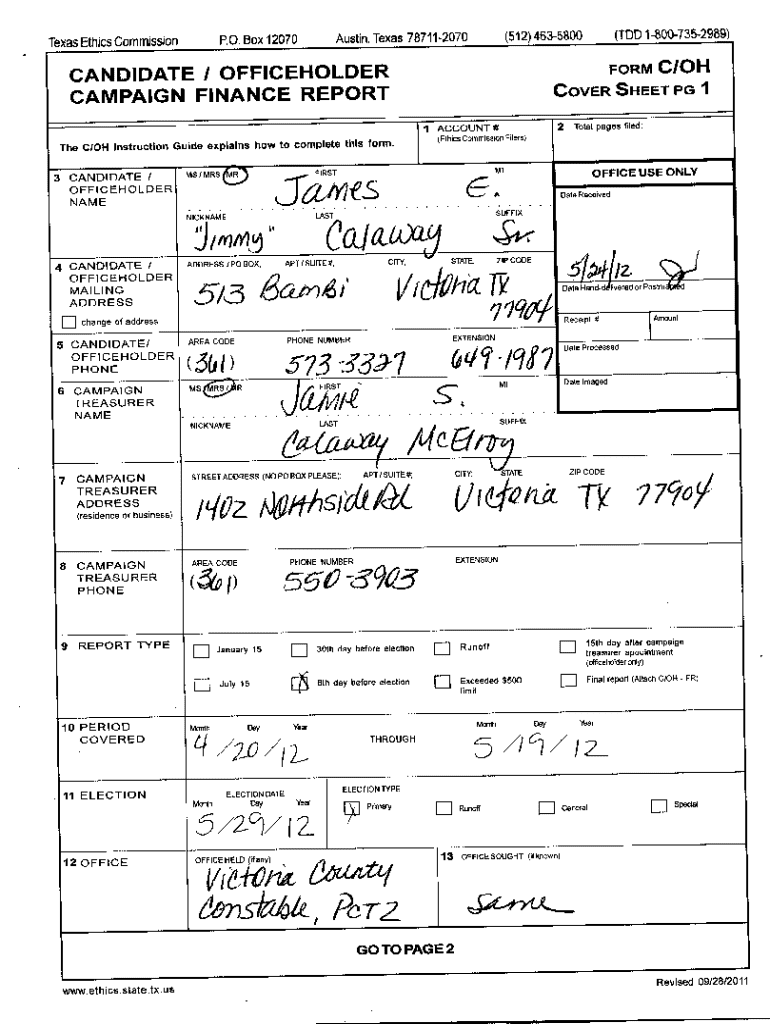 Texas Ethics Commission P.O. Box 12070 Austin, Texas 78711-2070 (512) 463-5800 (TDD 1-800-735-2989)
CANDIDATE / OFFICEHOLDER
CAMPAIGN FINANCE REPORT
FORM C/OH
COVER SHEET PG 1
The C/OH Instruction Guide explains how to complete this form.
1 ACCOUNT #
(Ethics Commission Filers)
2 Total pages filed:
3 CANDIDATE /
OFFICEHOLDER
NAME
MS / MRS / MR FIRST MI
James E.
NICKNAME LAST SUFFIX
"Jimmy" Calaway Sr.
OFFICE USE ONLY
Date Received
5/24/12
Date Hand-delivered or Postmarked
Receipt # Amount
Date Processed
Date Imaged
4 CANDIDATE /
OFFICEHOLDER
MAILING
ADDRESS
change of address
ADDRESS / PO BOX; APT / SUITE #; CITY; STATE; ZIP CODE
513 Bambi Victoria TX
77904
5 CANDIDATE/
OFFICEHOLDER
PHONE
AREA CODE PHONE NUMBER EXTENSION
(361) 573-3327 649-1987
6 CAMPAIGN
TREASURER
NAME
MS / MRS / MR FIRST MI
Jamie S.
NICKNAME LAST SUFFIX
Calaway McElroy
7 CAMPAIGN
TREASURER
ADDRESS
(residence or business)
STREET ADDRESS (NO PO BOX PLEASE); APT / SUITE #; CITY; STATE; ZIP CODE
1402 Northside Rd Victoria TX 77904
8 CAMPAIGN
TREASURER
PHONE
AREA CODE PHONE NUMBER EXTENSION
(361) 550-3903
9 REPORT TYPE
January 15 30th day before election Runoff 15th day after campaign
treasurer appointment
(officeholder only)
July 15 8th day before election Exceeded $500
limit
Final report (Attach C/OH - FR)
10 PERIOD
COVERED
Month Day Year
4/20/12
THROUGH
Month Day Year
5/19/12
11 ELECTION
ELECTION DATE
Month Day Year
5/29/12
ELECTION TYPE
Primary Runoff General Special
12 OFFICE
OFFICE HELD (if any)
Victoria County
Constable, PCT 2
13 OFFICE SOUGHT (if known)
Same
GO TO PAGE 2
www.ethics.state.tx.us
Revised 09/28/2011